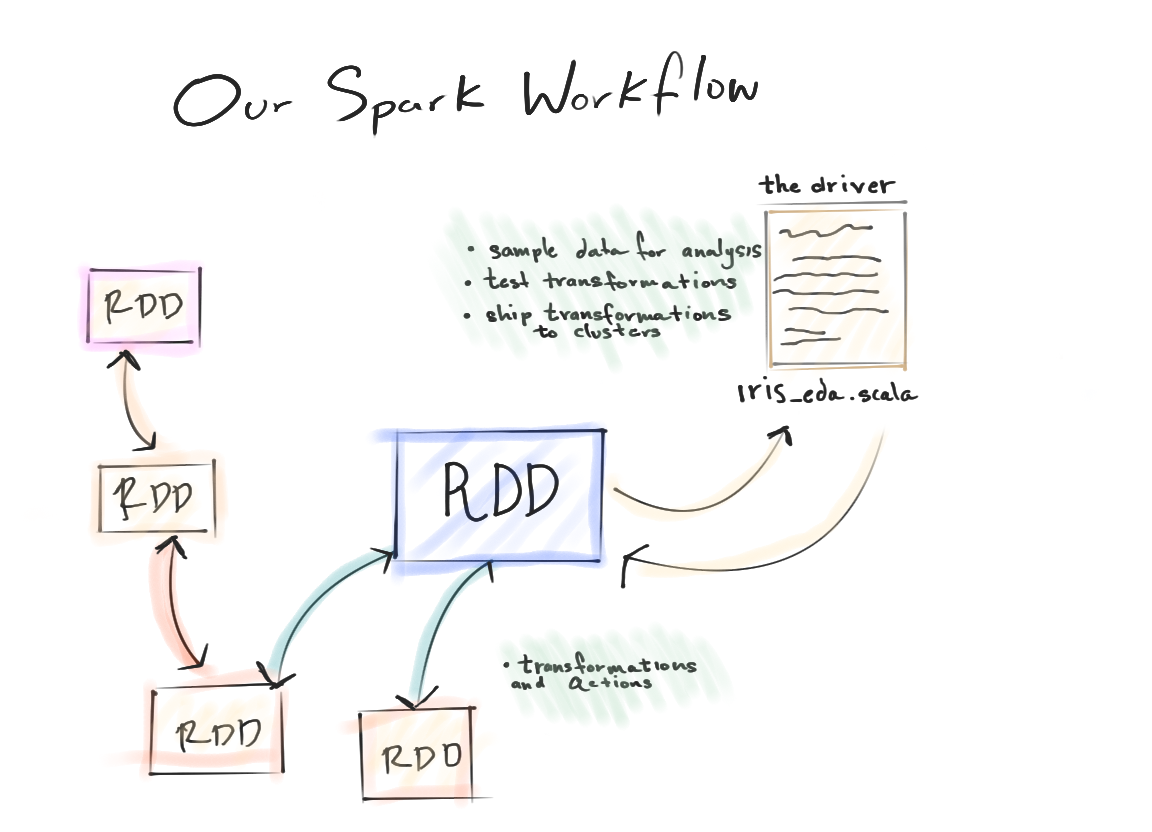 Our Spark Workflow
the driver
• sample data for analysis
• test transformations
• ship transformations
to clusters
iris_eda.scala
RDD
RDD
RDD
RDD
RDD
• transformations
and actions